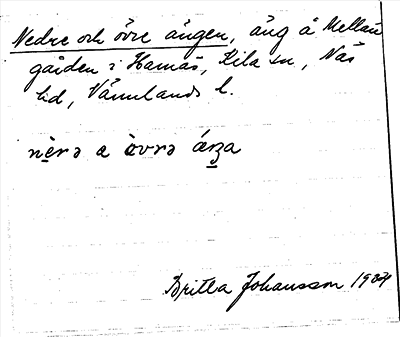 Nedre och övre ängen, äng å Mellan
gården i Hamås, Kila sn, Näs
hd, Värmlands l.
nèrə a òvrə áŋa
Britta Johansson 1934